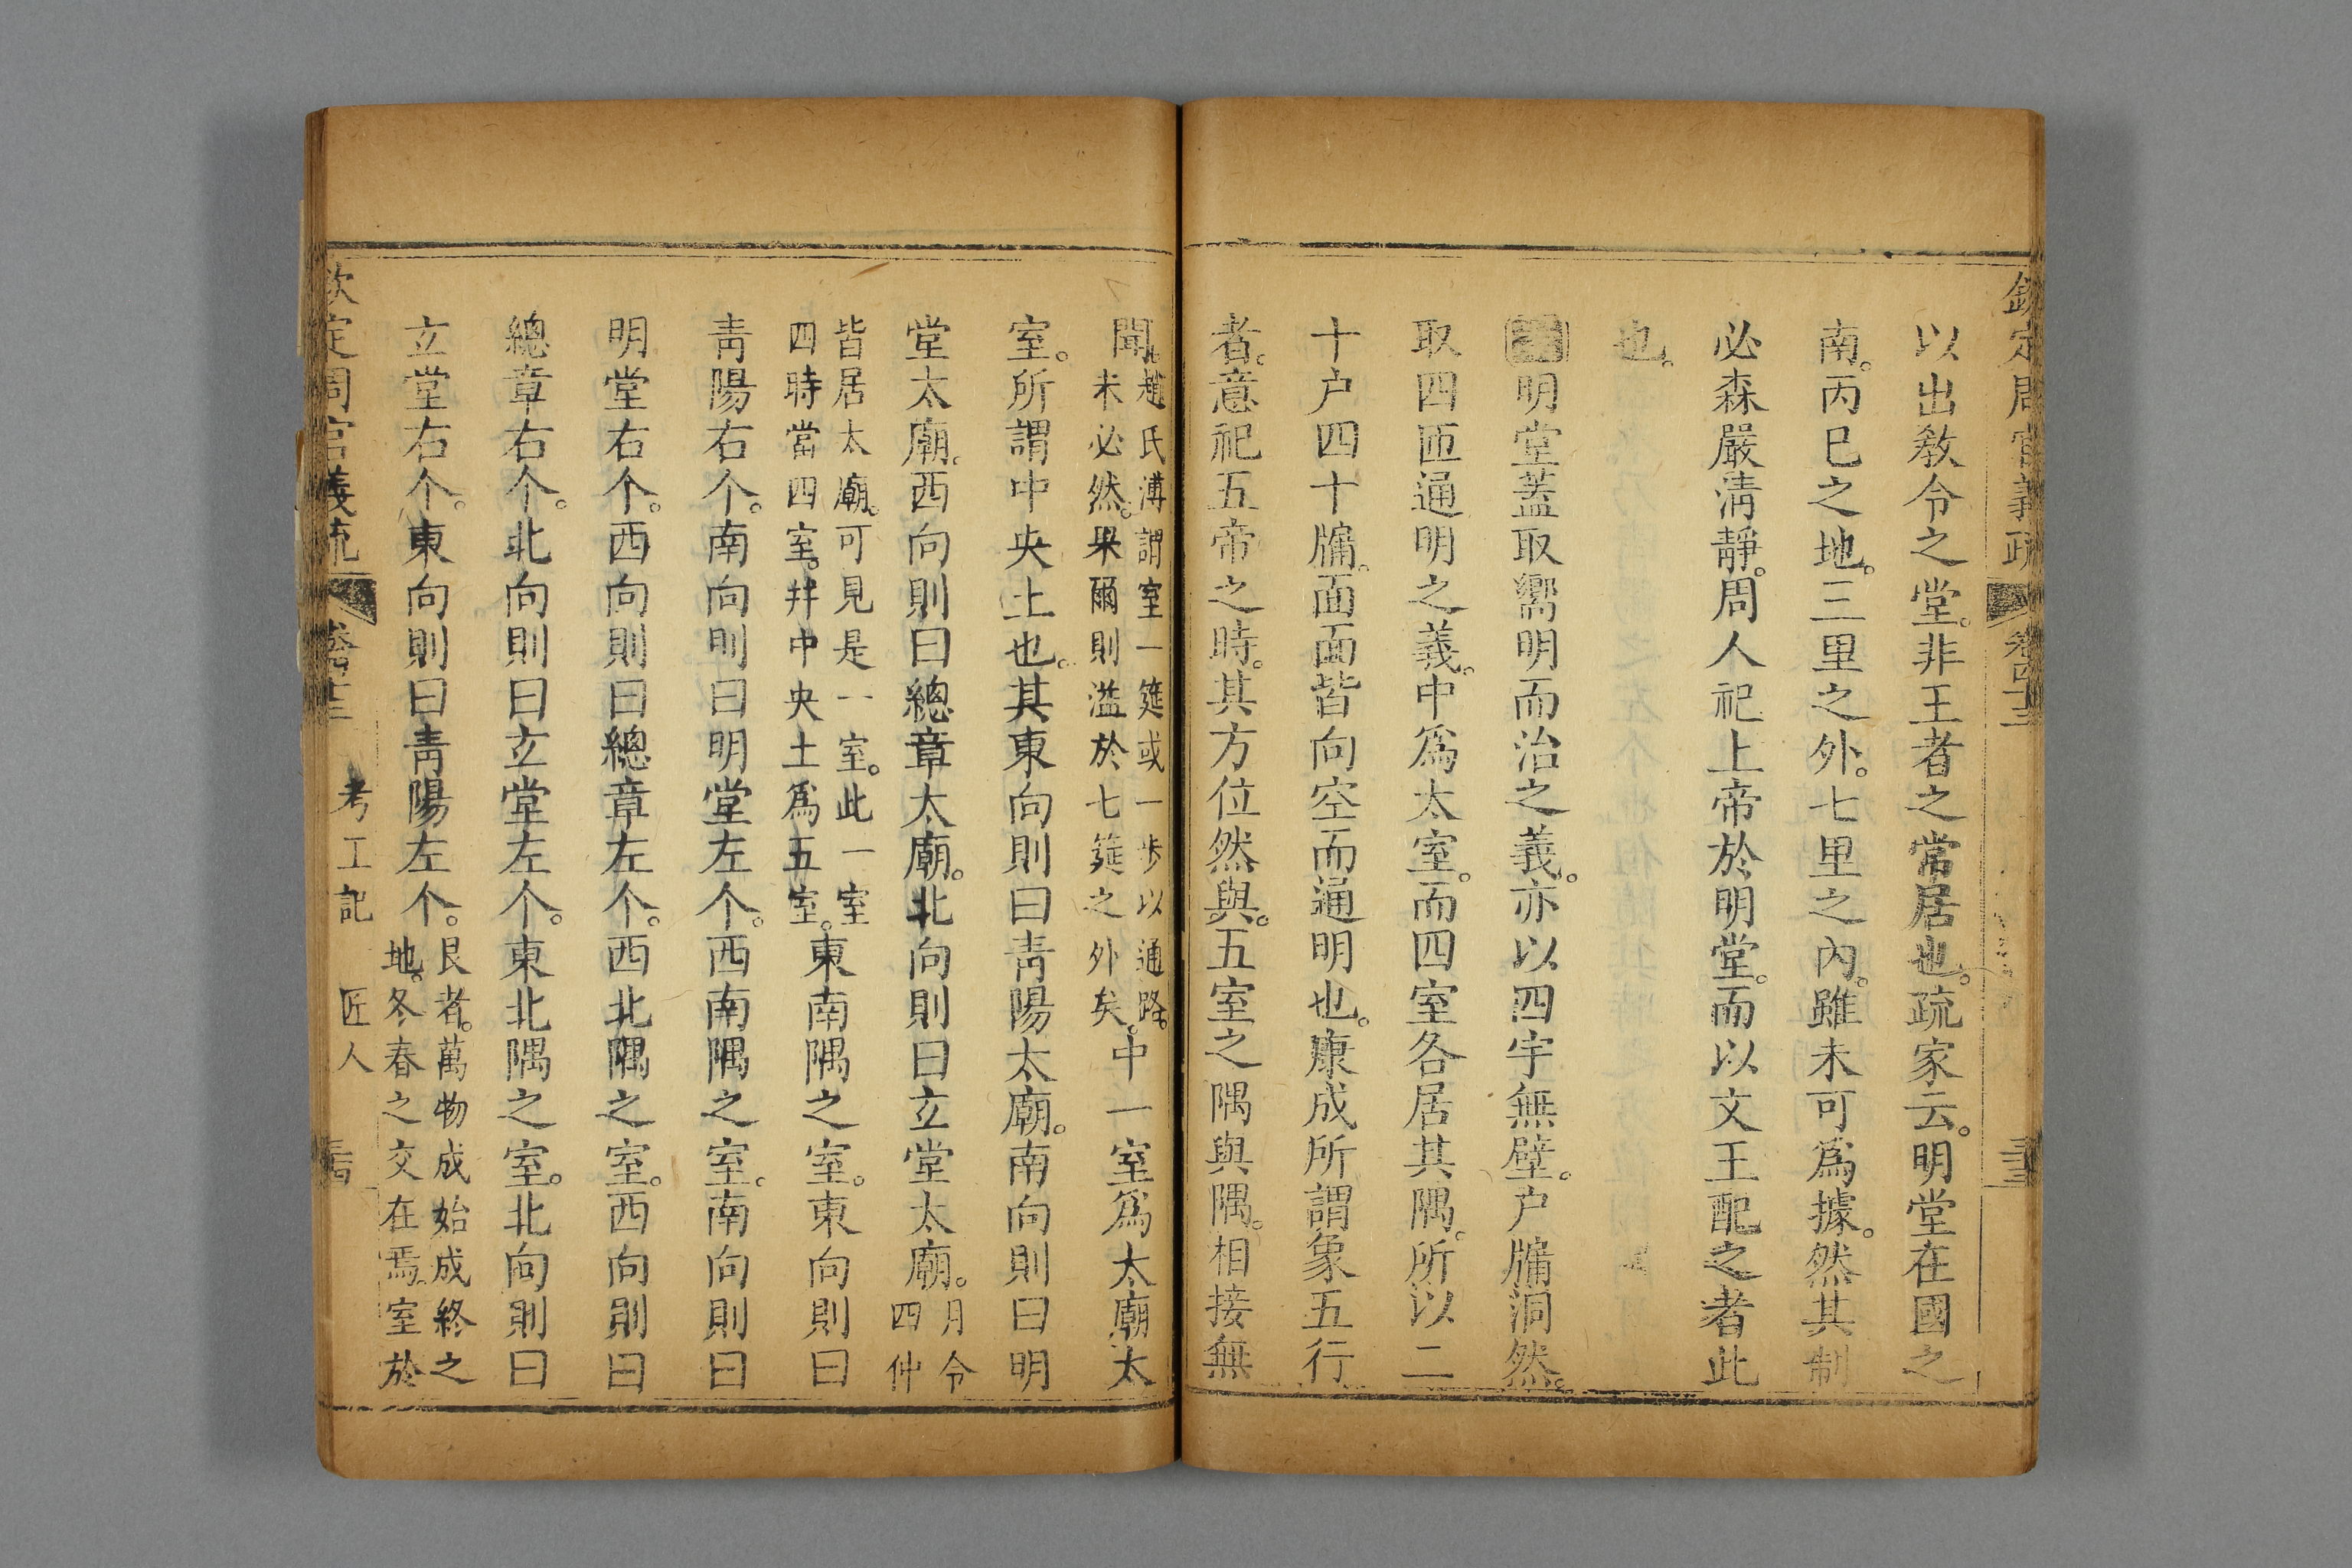 欽定周官義疏 卷四十三
以出敎令之堂。非王者之常居也。疏家云。明堂在國之
南。丙巳之地。三里之外。七里之內。雖未可爲據。然其制
必森嚴淸靜。周人祀上帝於明堂。而以文王配之者此
也。
明堂蓋取嚮明而治之義。亦以四宇無壁。戶牖洞然。
取四面通明之義。中爲太室。而四室各居其隅。所以二
十戶四十牖。面面皆向空而通明也。康成所謂象五行
者。意祀五帝之時。其方位然與。五室之隅與隅。相接無
閒。趙氏溥謂室一筵或一步以通路。
未必然。果爾則溢於七筵之外矣。中一室爲太廟太
室。所謂中央土也。其東向則曰靑陽太廟。南向則曰明
堂太廟。西向則曰總章太廟。北向則曰玄堂太廟。月令
四仲
皆居太廟。可見是一室。此一室
四時當四室。幷中央土爲五室。東南隅之室。東向則曰
靑陽右个。南向則曰明堂左个。西南隅之室。南向則曰
明堂右个。西向則曰總章左个。西北隅之室。西向則曰
總章右个。北向則曰玄堂左个。東北隅之室。北向則曰
玄堂右个。東向則曰靑陽左个。艮者。萬物成始成終之
地。冬春之交在焉。室於
欽定周官義疏 考工記 匠人